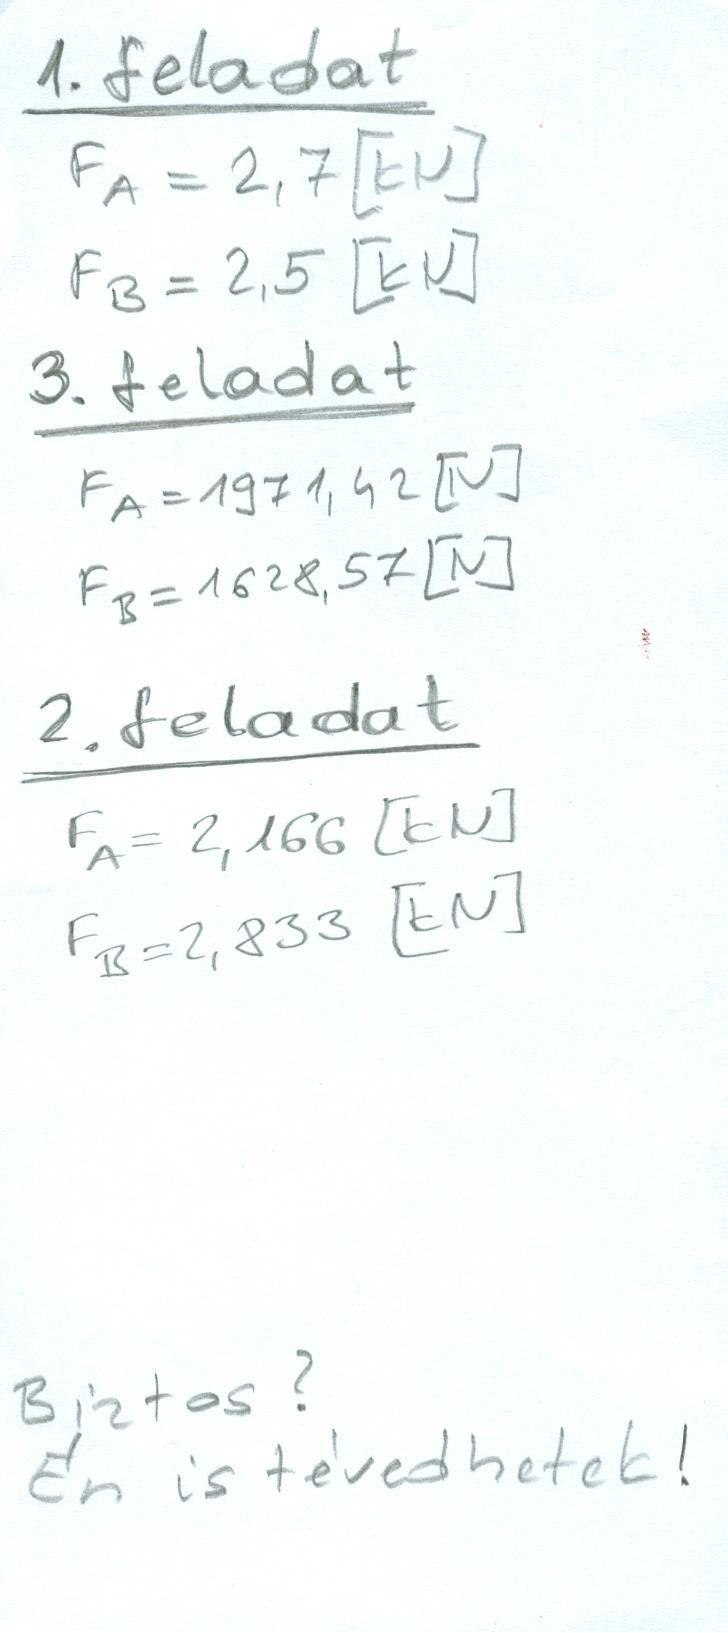 1. feladat
FA = 2,7 [kN]
FB = 2,5 [kN]
3. feladat
FA = 1971,42 [N]
FB = 1628,57 [N]
2. feladat
FA = 2,166 [kN]
FB = 2,833 [kN]
Biztos?
Én is tévedhetek!